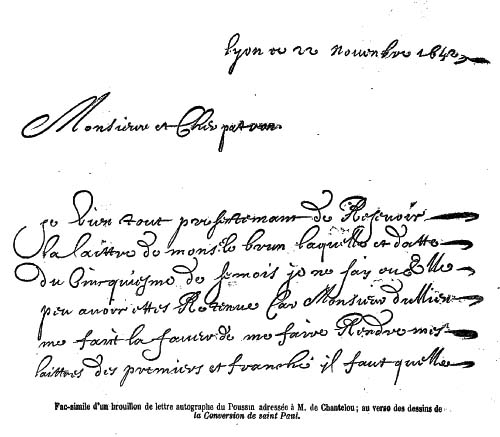 Lyon ce 22 Nouenbre 1642
Monsieur et Cher patron
Je bien tout presentemant de Resevoir
la laittre de mons. le brun laquelle et datte
du Cincquiesme de semois je ne say ou elle
peu auoir ettes Retenue Car Monsieur du lieu
me fait la faueur de me faire Rendre mes
laittres des premiers et franche il faut quelle
Fac-simile d'un brouillon de lettre autographe du Poussin adressée à M. de Chantelou; au verso des dessins de
la Conversion de saint Paul.